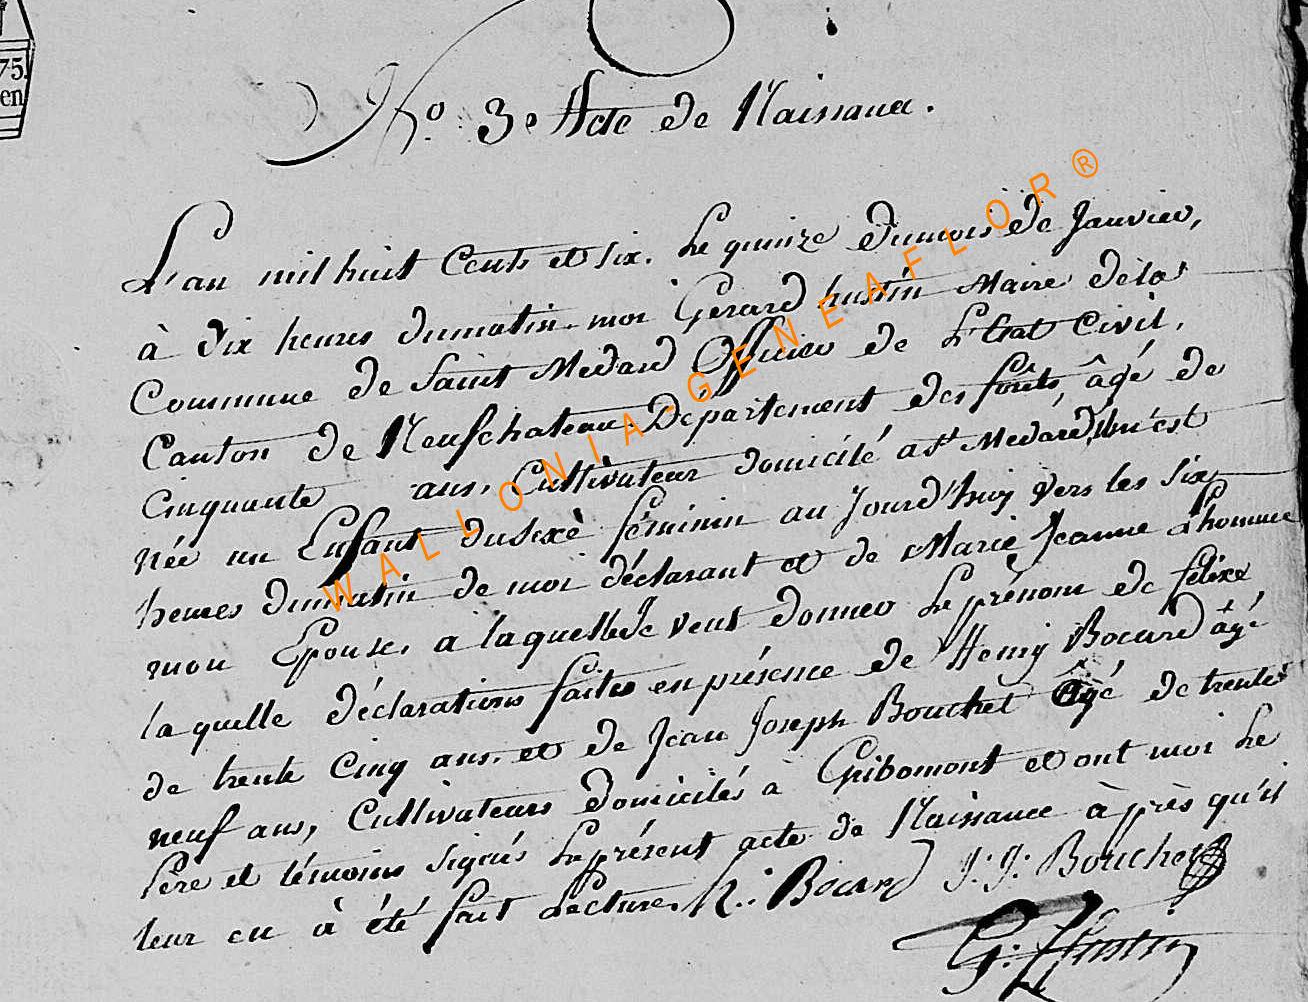 75.
en
No. 3e Acte de Naissance.
L'an mil huit Cents et six. Le quinze dumois de Janvier,
à dix heures dumatin. moi Gérard hustin Maire dela
Commune de Saint Médard Officier de L'Etat Civil,
Canton de Neufchateau. Département des forêts, âgé de
Cinquante ans, Cultivateur domicilé a st Medard, un'est
née un Enfant dusexè féminin au Jourd'huy vers les six
heures dumatin de moi déclarant et de Marie Jeanne Lhomme
mon Epouse. a laquelle Je veut donner Le prénom de felixe
laquelle déclarations faites en présence de Henry Bocard âgé
de trente Cinq ans. et de Jean Joseph Bouchet âgé de trente
neuf ans, Cultivateurs domicilés à Gribomont et ont moi Le
Père et témoins signés Le présent acte de Naissance à près qu'il
leur en à été fait Lecture. h: Bocard J: J: Bouchet
G: Hustin
WALLONIA-GENEAFLOR®